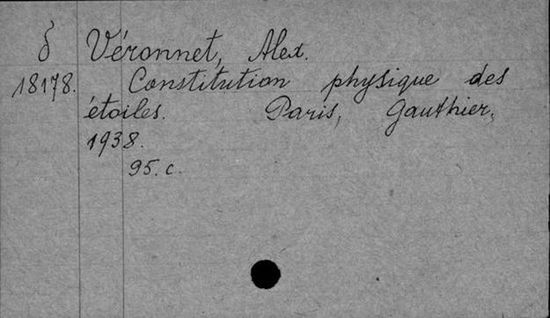 δ Véronnet, Alex.
18178. Constitution physique des
étoiles. Paris, Gauthier,
1938.
95. c.